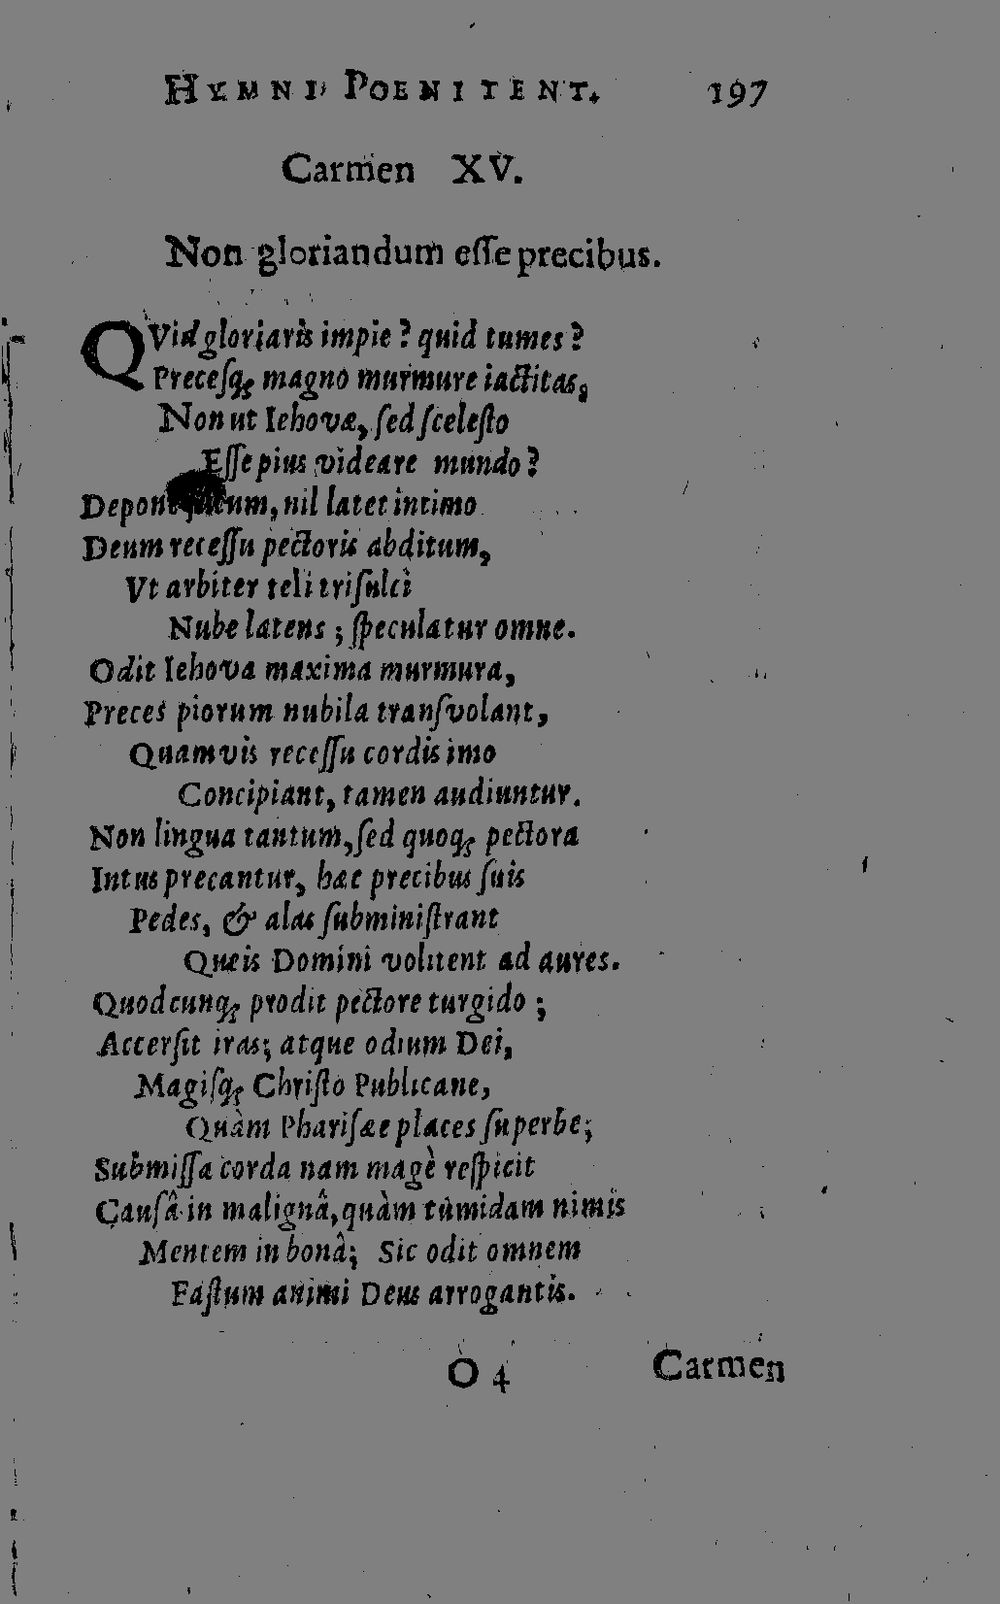 HYMNI POENITENT. 197
Carmen XV.
Non gloriandum eſſe precibus.
QVid gloriaris impie? quid tumes?
Preceſq; magno murmure iactitas,
Non ut Iehovæ, ſed ſceleſto
Eſſe pius videare mundo?
nil latet intimo
Deum receſſu pectoris abditum,
Vt arbiter teli triſulci
Nube latens; ſpeculatur omne.
Odit Iehova maxima murmura,
Preces piorum nubila tranſvolant,
Quamvis receſſu cordis imo
Concipiant, tamen audiuntur.
Non lingua tantum, ſed quoq; pectora
Intus precantur, hæc precibus ſuis
Pedes, & alas ſubminiſtrant
Queis Domini volitent ad aures.
Quodcunq; prodit pectore turgido;
Accerſit iras; atque odium Dei,
Magiſq; Chriſto Publicane,
Quàm Phariſæe places ſuperbe;
Submiſſa corda nam magè reſpicit
Cauſâ in malignâ, quàm tumidam nimis
Mentem in bonâ; Sic odit omnem
Faſtum animi Deus arrogantis.
O 4 Carmen